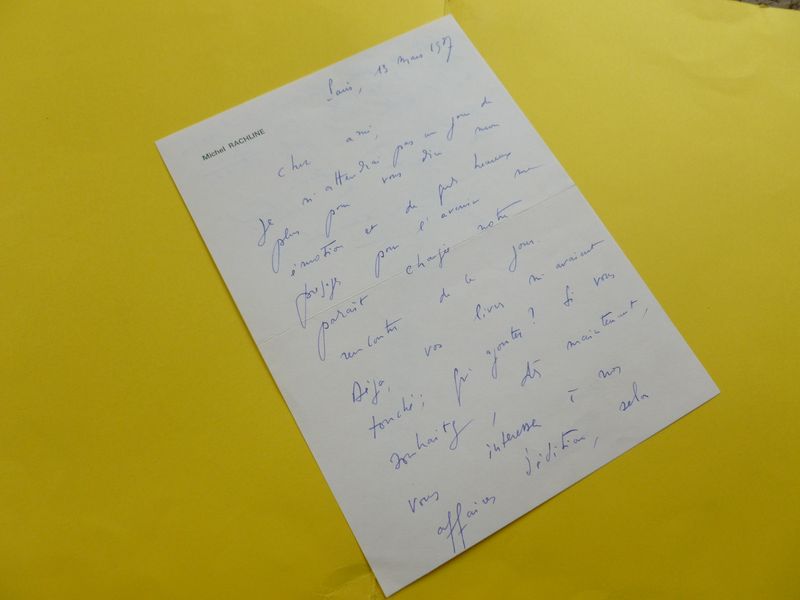 Michel RACHLINE
Paris, 13 mars 1987
Cher ami,
Je n'attendrai pas un jour de
plus pour vous dire mon
émotion et de quels heureux
présages pour l'avenir me
paraît chargée notre
rencontre de ce jour.
Déjà, vos livres m'avaient
touché; qu'ajouter? Si vous
souhaitez, dès maintenant,
vous intéresser à nos
affaires d'édition, cela